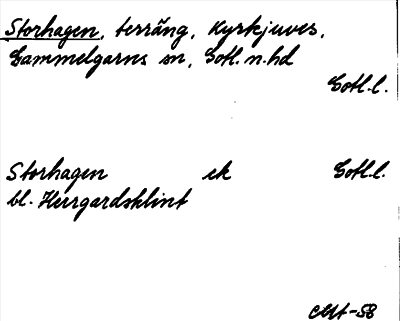 Storhagen, terräng, Kyrkjuves,
Gammelgarns sn, Gotl. n. hd
Gotl. l.
Storhagen ek Gotl. l.
bl. Herrgardsklint